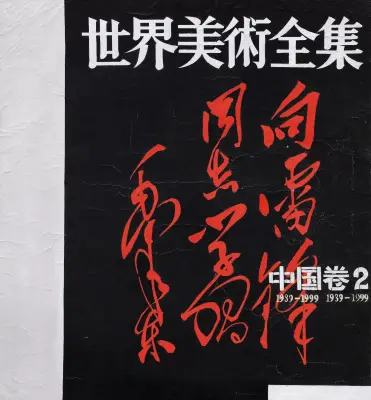 世界美術全集
向雷鋒
同志学習
毛泽东
中国卷2
1939-1999 1939-1999